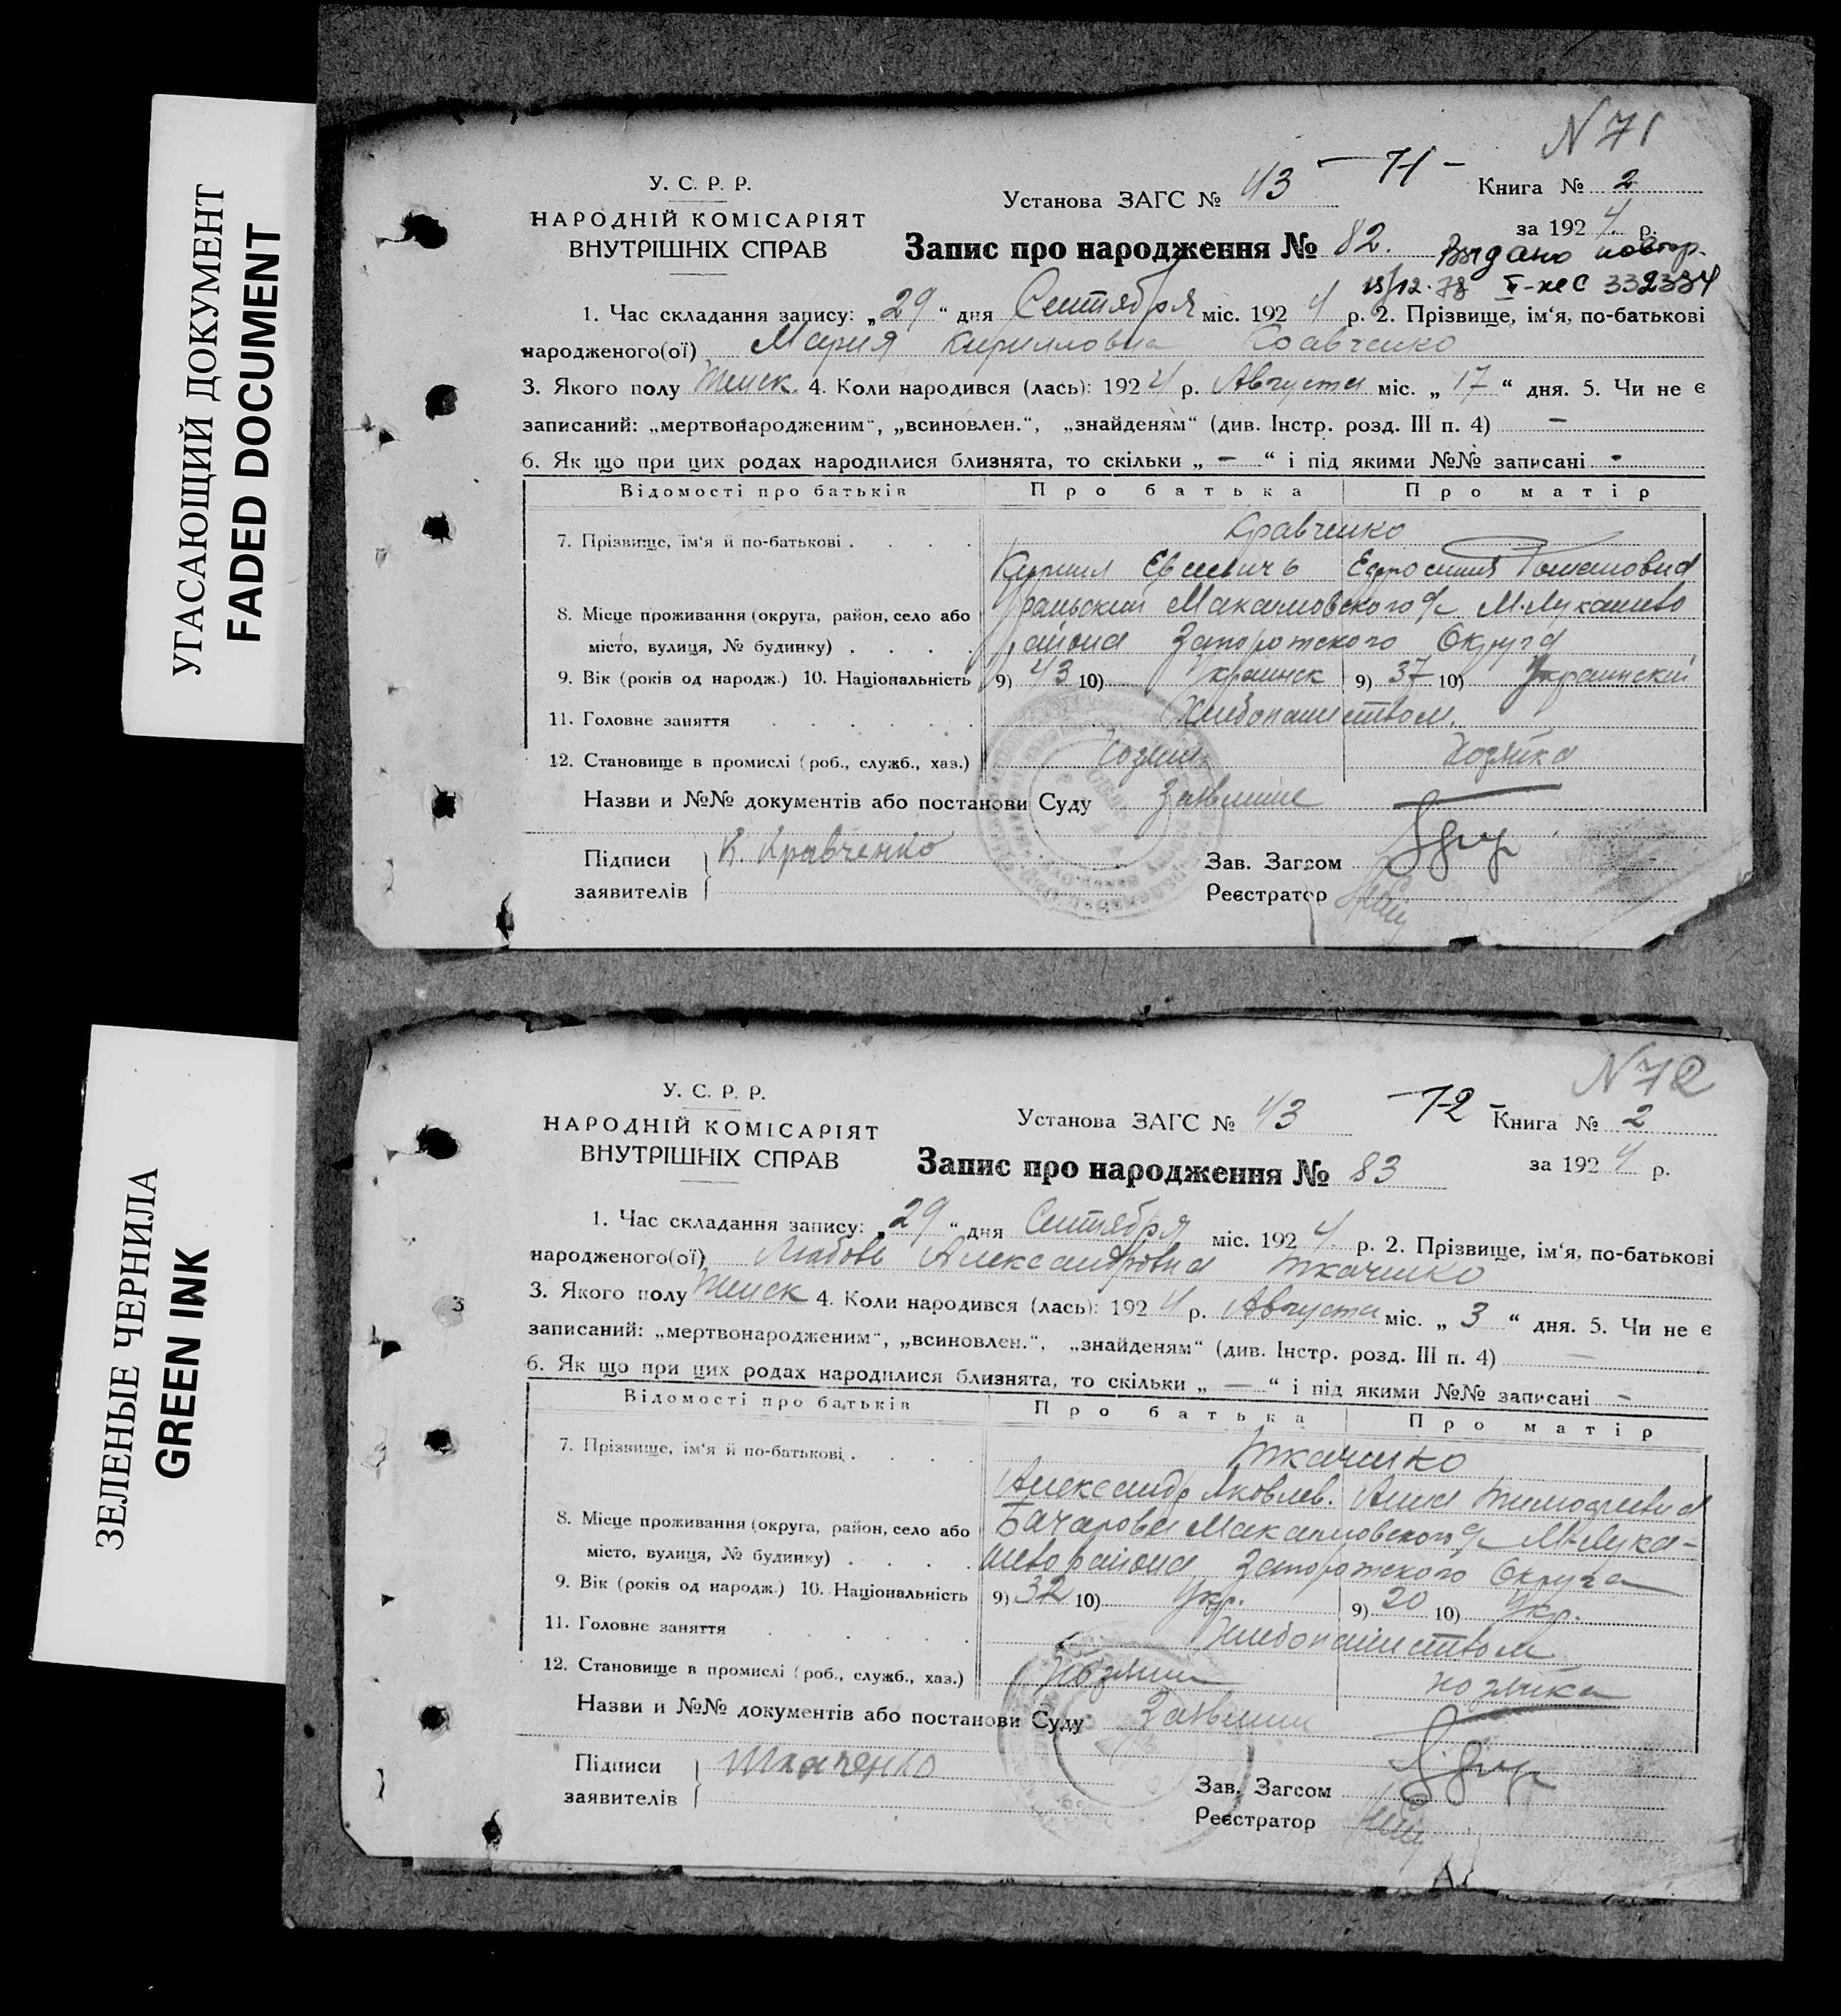 УГАСАЮЩИЙ ДОКУМЕНТ
FADED DOCUMENT
N 71
У. С. Р. Р.
НАРОДНІЙ КОМІСАРІЯТ
ВНУТРІШНІХ СПРАВ
Установа ЗАГС № 43 — 71 — Книга № 2
за 1924 р.
Запис про народження № 82. Выдано повтор.
332334
1. Час складання запису: „29“ дня Сентября міс. 1924 р. 2. Прізвище, ім‘я, по-батькові
народженого(ої) Мария Кирилловна Кравченко
3. Якого полу Женск. 4. Коли народився (лась): 1924 р. Августа міс. „17“ дня. 5. Чи не є
записаний: „мертвонародженим“, „всиновлен.“, „знайденям“ (див. Інстр. розд. III п. 4) —
6. Як що при цих родах народилися близнята, то скільки „—“ і під якими №№ записані -
Відомості про батьків Про батька Про матір
7. Прізвище, ім‘я й по-батькові . . . . Кравченко
Кирилл Евсеевичъ Ефросиния Романовна
8. Місце проживання (округа, район, село або Максимовского с/с М-Лукашево
місто, вулиця, № будинку) . . . . района Запорожского Округа
9. Вік (років од народж.) 10. Національність 9) 43 10) Украинск 9) 37 10) Украинский
11. Головне заняття . . . . . . Хлебопашеством.
12. Становище в промислі (роб., служб., хаз.) Хозяин Хозяйка
Назви и №№ документів або постанови Суду Заявление
Підписи К. Кравченко
заявителів
Зав. Загсом
Реєстратор
ЗЕЛЕНЫЕ ЧЕРНИЛА
GREEN INK
N 72
У. С. Р. Р.
НАРОДНІЙ КОМІСАРІЯТ
ВНУТРІШНІХ СПРАВ
Установа ЗАГС № 43 — 72 — Книга № 2
за 1924 р.
Запис про народження № 83
1. Час складання запису: „29“ дня Сентября міс. 1924 р. 2. Прізвище, ім‘я, по-батькові
народженого(ої) Любовь Александровна Ткаченко
3. Якого полу Женск 4. Коли народився (лась): 1924 р. Августа міс. „3“ дня. 5. Чи не є
записаний: „мертвонародженим“, „всиновлен.“, „знайденям“ (див. Інстр. розд. III п. 4) —
6. Як що при цих родах народилися близнята, то скільки „—“ і під якими №№ записані -
Відомості про батьків Про батька Про матір
7. Прізвище, ім‘я й по-батькові . . . . Ткаченко
Александр Яковлев. Анна Тимофеевна
8. Місце проживання (округа, район, село або Бачарова Максимовского с/с М-Лука-
місто, вулиця, № будинку) . . . . шево района Запорожского Округа
9. Вік (років од народж.) 10. Національність 9) 32 10) Укр. 9) 20 10) Укр.
11. Головне заняття . . . . . . Хлебопашеством
12. Становище в промислі (роб., служб., хаз.) Хозяин хозяйка
Назви и №№ документів або постанови Суду Заявлении
Підписи Ткаченко
заявителів
Зав. Загсом
Реєстратор